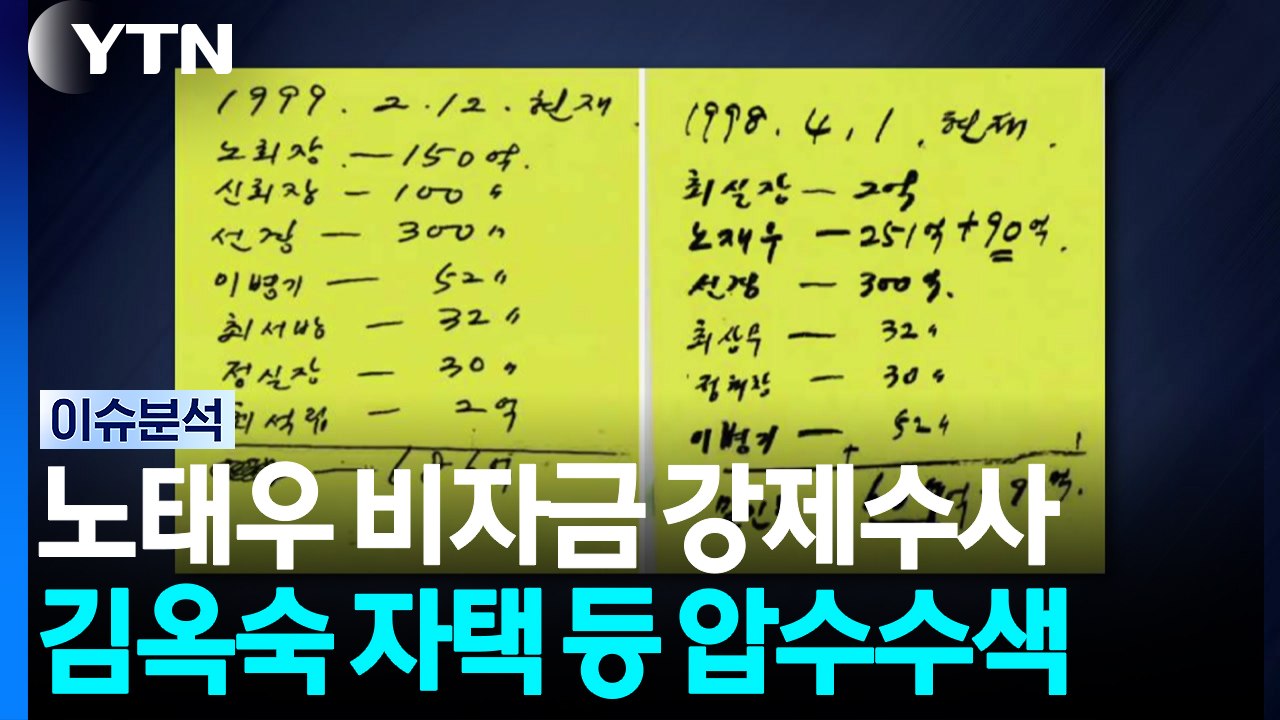 YTN
1999. 2. 12. 현재.
노회장 - 150억.
신회장 - 100 〃
선경 - 300 〃
이병기 - 52 〃
최서방 - 32 〃
정실장 - 30 〃
최석립 - 2억
1998. 4. 1. 현재.
최실장 - 2억
노재우 - 251억 + 90억.
선경 - 300억.
최상무 - 32 〃
30 〃
이병기 - 52 〃
이슈분석
노태우 비자금 강제수사
김옥숙 자택 등 압수수색